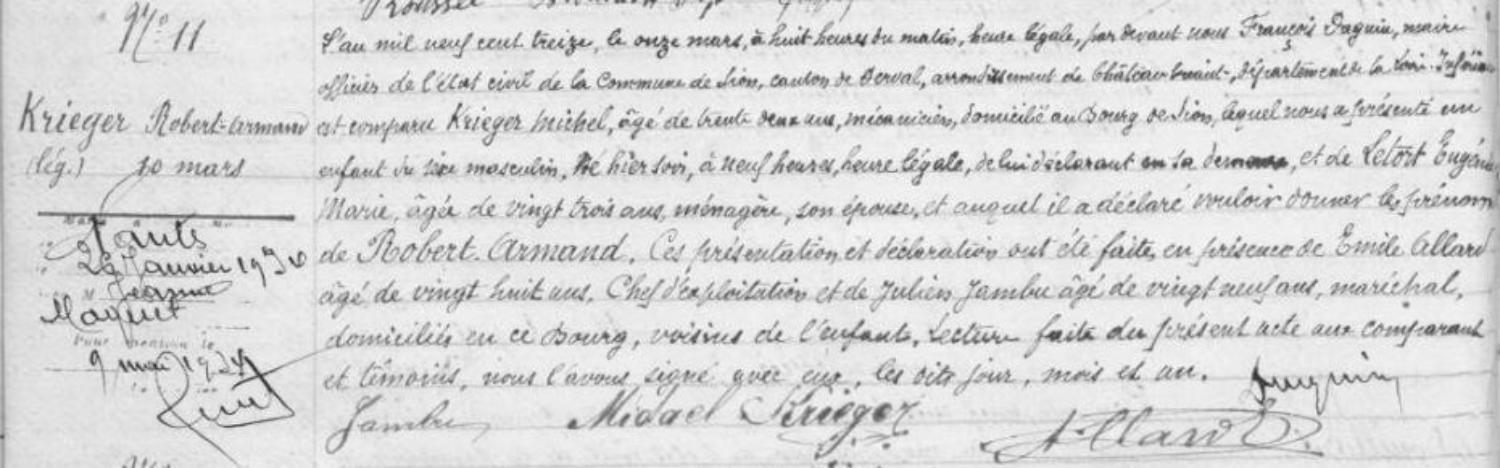 N° 11
Krieger Robert-Armand
(lég.) 10 mars
Marié à
26 Janvier 1934
Jeanne
Maquet
Pour mention le
9 mai 1934
L'an mil neuf cent treize, le onze mars, à huit heures du matin, heure légale, par devant nous François Daguin, maire
officier de l'état civil de la Commune de Sion, canton de Derval, arrondissement de Châteaubriant, département de la Loire-Inférieure
est comparu Krieger Michel, âgé de trente deux ans, mécanicien, domicilié au Bourg de Sion, lequel nous a présenté un
enfant du sexe masculin, Né hier soir, à neuf heures, heure légale, de lui déclarant en sa demeure, et de Letort Eugénie
Marie, âgée de vingt trois ans, ménagère, son épouse, et auquel il a déclaré vouloir donner les prénoms
de Robert Armand. Ces présentation et déclaration ont été faites en présence de Emile Allard
âgé de vingt huit ans, Chef d'exploitation et de Julien Jambu âgé de vingt neuf ans, maréchal,
domiciliés en ce Bourg, voisins de l'enfant, Lecture faite du présent acte aux comparant
et témoins, nous l'avons signé avec eux, les dits jour, mois et an.
Daguin
Jambu Michael Krieger Allard